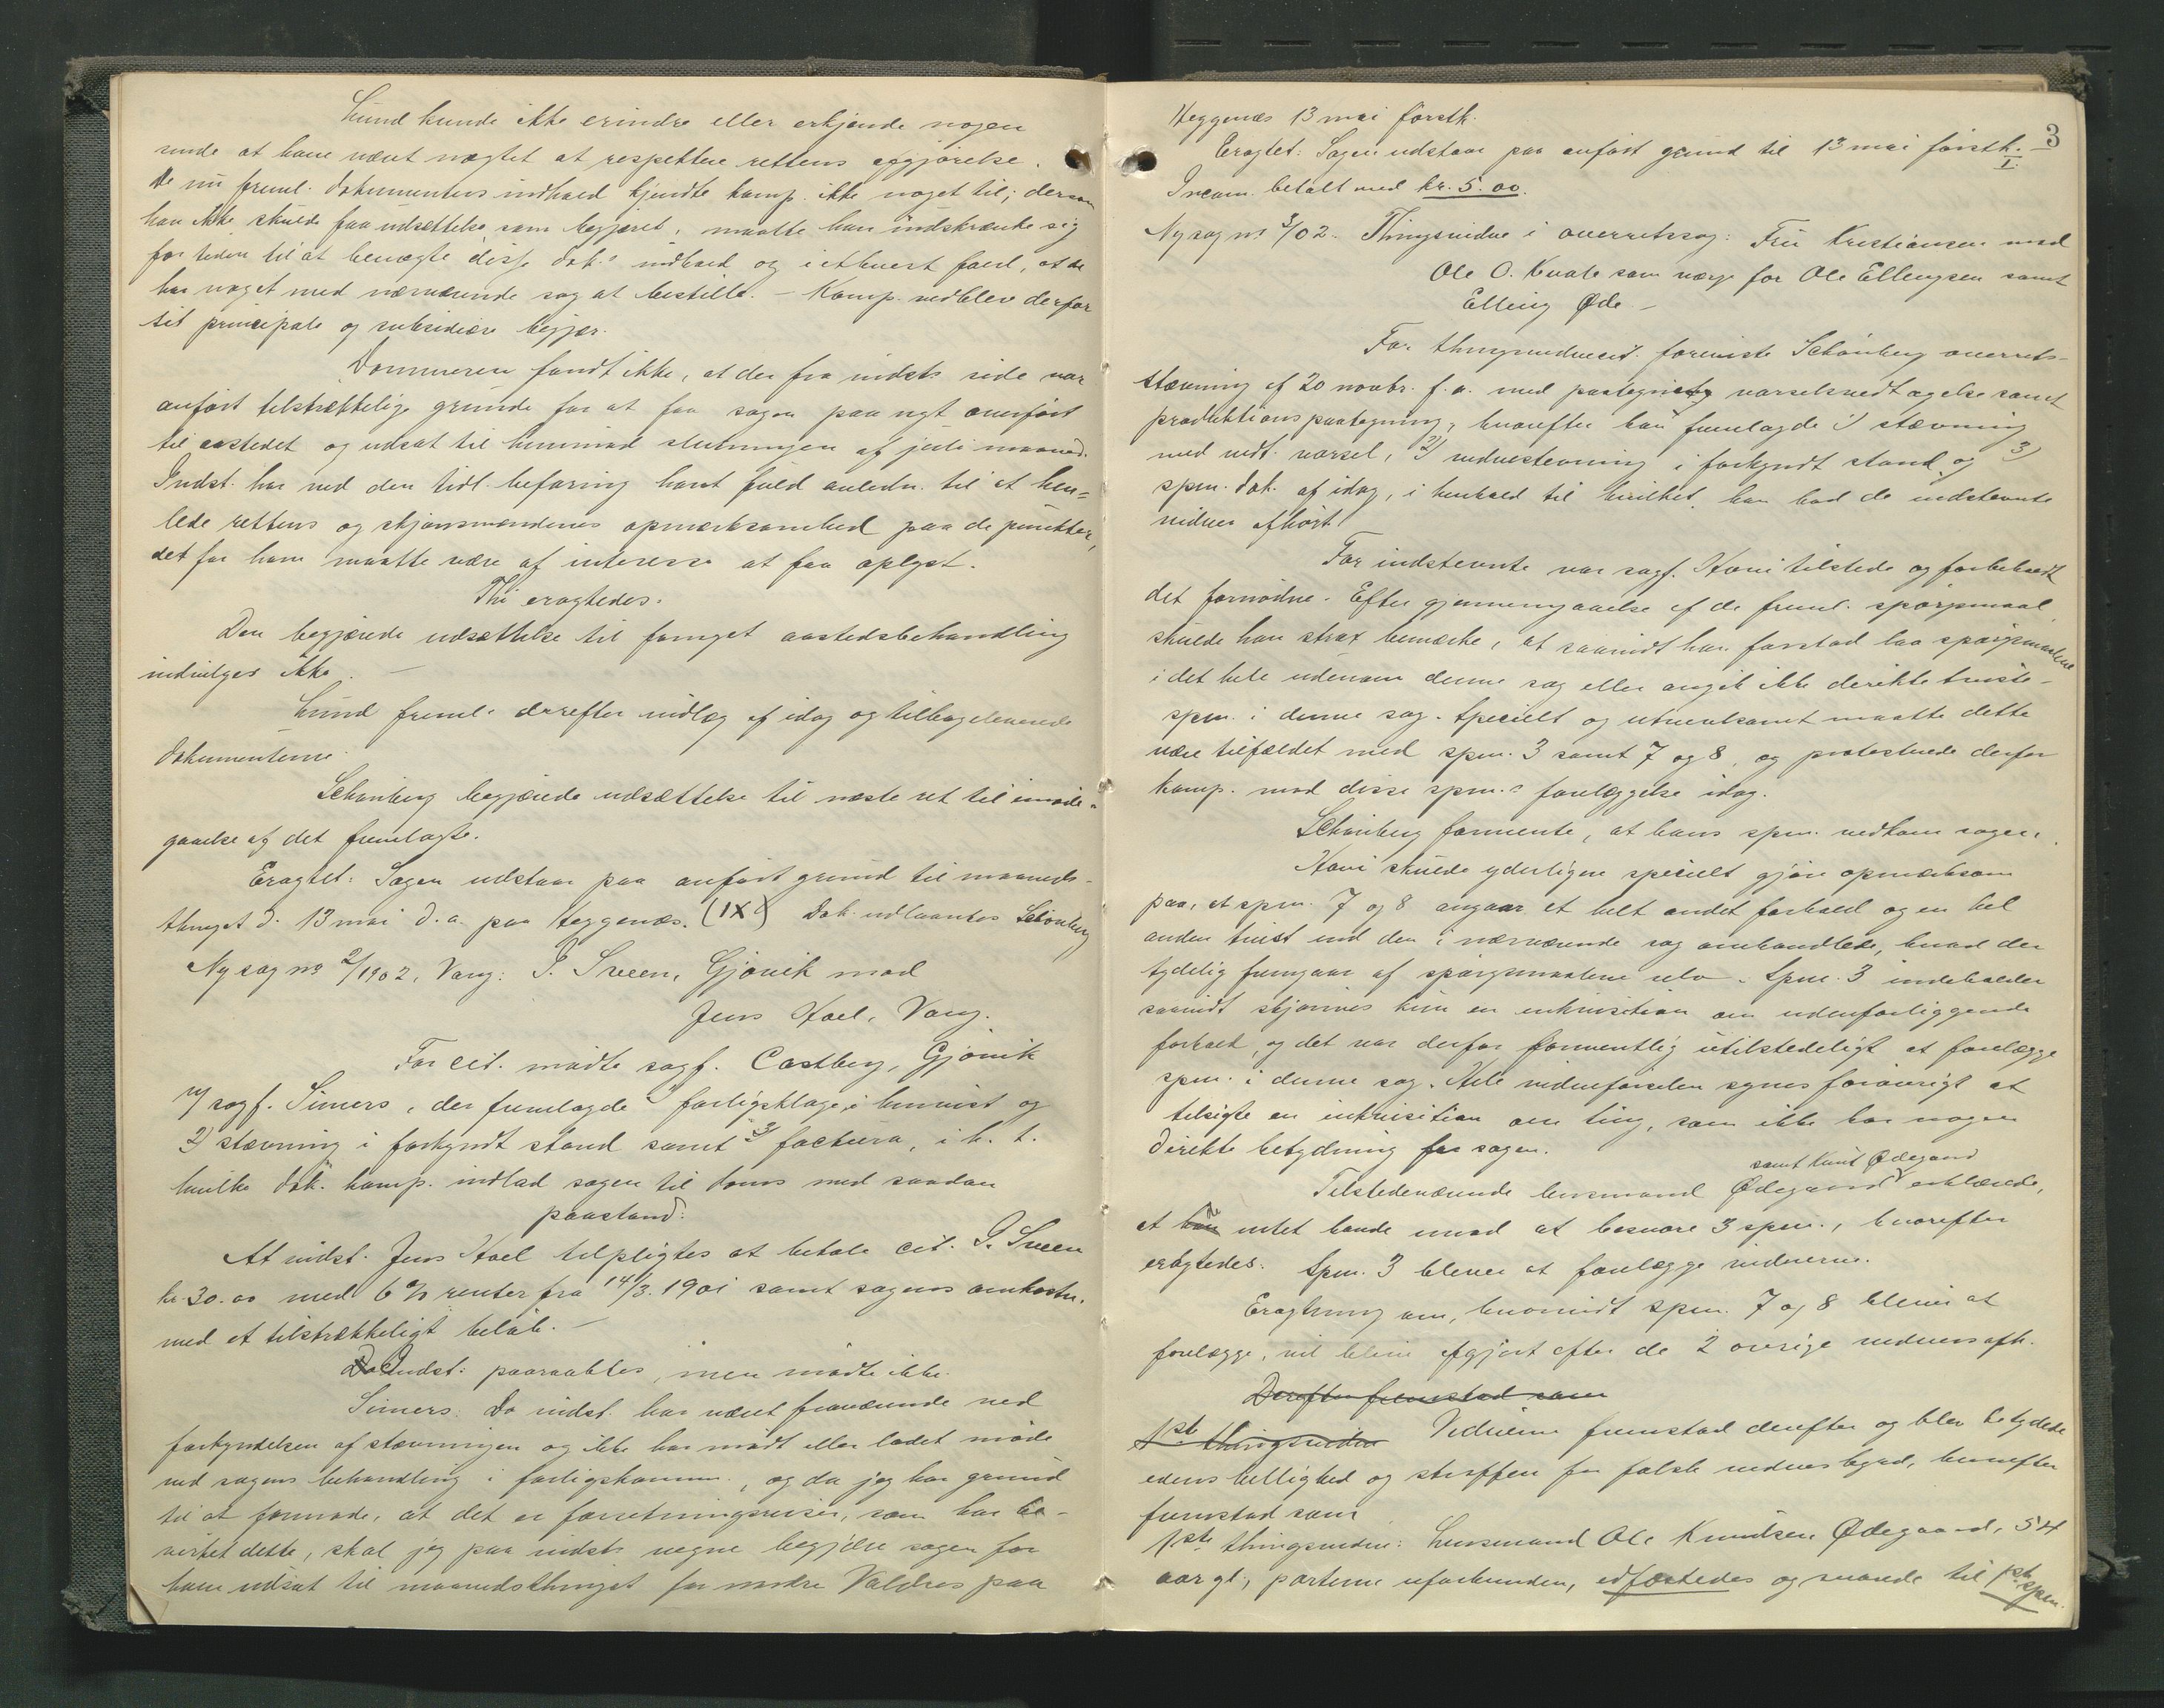 Lund kunde ikke erindre eller erkjende nogen
sinde at have været nægtet at respektere rettens afgjørelse.
De nu freml. dokumenters indhold kjendte komp. ikke noget til; dersom
han ikke skulde faa udsættelse som begjæret, maatte han indskrænke sig
for tiden til at benægte disse dok.s indhold og i ethvert fald, at de
har noget med nærværende sag at bestille. – Komp. vedblev derfor
sit principale og subsidiære begjær.
Dommeren fandt ikke, at der fra indst.s side var
anført tilstrækkelige grunde for at faa sagen paa nyt overført
til aastedet og udsat til henimod slutningen af juli maaned.
Indst. har ved den tidl. befaring havt fuld anledn. til at hen=
lede rettens og skjønsmændenes opmærksomhed paa de punkter,
det for ham maatte være af interesse at faa oplyst.
Thi eragtedes:
Den begjærede udsættelse til fornyet aastedsbehandling
indvilges ikke. –
Lund freml. derefter indlæg af idag og tilbageleverede
dokumenterne.
Schønberg begjærede udsættelse til næste ret til imøde=
gaaelse af det fremlagte.
Eragtet: Sagen udstaar paa anført grund til maaneds-
thinget d. 13 mai d.a. paa Heggenæs. (IX) Dok. udlaantes Schønberg
Ny sag no 2/1902, Vang: P. Sveen, Gjøvik mod
Jens Hoel, Vang.
For cit. mødte sagf. Castberg, Gjøvik
v/ sagf. Simers, der fremlagde 1) forligsklage i henvist og
2) stævning i forkyndt stand samt 3) factura, i h. t.
hvilke dok. komp. indlod sagen til doms med saadan
paastand:
At indst. Jens Hoel tilpligtes at betale cit. P. Sveen
kr. 30.00 med 6% renter fra 14/3. 1901 samt sagens omkostn.
med et tilstrækkeligt beløb. –
Indst. paaraabtes, men mødte ikke.
Simers: Da indst. har været fraværende ved
forkyndelsen af stævningen og ikke har mødt eller ladet møde
ved sagens behandling i forligskomm., og da jeg har grund
til at formode, at det er forretningsreiser, som har be-
virket dette, skal jeg paa indst.s vegne begjære sagen for
ham udsat til maanedsthinget for nordre Valdres paa
3
Heggenæs 13 mai førstk.
Eragtet: Sagen udstaar paa anført grund til 13 mai førstk. I.
Incam. betalt med kr. 5.00.
Ny sag no 3/02. Thingsvidne i overretssag: Fru Kristiansen mod
Ole O. Kvale som værge for Ole Ellingsen samt
Elling Øde. –
For thingsvidnecit. foreviste Schønberg overrets-
stævning af 20 novbr. f.a. med paategnet varselsvedtagelse samt
produktionspaategning, hvorefter han fremlagde 1) stævning
med vedt. varsel, 2) vidnestevning i forkyndt stand og 3)
spm. dok. af idag, i henhold til hvilket han bad de indstevnte
vidner afhørt.
For indstevnte var sagf. Hovi tilstede og forbeholdt
det fornødne. Efter gjennemgaaelse af de freml. spørgsmaal
skulde han strax bemærke, at saavidt han forstod laa spørgsmaalene
i det hele udenom denne sag eller angik ikke direkte tviste-
spm. i denne sag. Specielt og utvivlsomt maatte dette
være tilfældet med spm. 3 samt 7 og 8, og protesterede derfor
komp. mod disse spm.s forelæggelse idag.
Schønberg formente, at hans spm. vedkom sagen.
Hovi skulde yderligere specielt gjøre opmærksom
paa, at spm. 7 og 8 angaar et helt andet forhold og en hel
anden tvist end den i nærværende sag omhandlede, hvad der
tydelig fremgaar af spørgsmaalene selv. Spm. 3 indeholder
saavidt skjønnes kun en inkvisition om udenforliggende
forhold, og det var derfor formentlig utilstedeligt at forelægge
spm. i denne sag. Hele vidneførselen synes forøvrigt at
tilsigte en inkvisition om ting, som ikke har nogen
direkte betydning for sagen.
samt Knut Ødegaard
Tilstedeværende husmand Ødegaard erklærede,
at de intet havde imod at besvare 3 spm., hvorefter
eragtedes: Spm. 3 bliver at forelægge vidnerne.
Eragtning om, hvorvidt spm. 7 og 8 bliver at
forelægge, vil blive afgjort efter de 2 øvrige vidners afh.
Derefter fremstod som
1ste thingsvidne Vidnerne fremstod derefter og blev betydede
edens hellighed og straffen for falsk vidnesbyrd, hvorefter
fremstod som
1ste thingsvidne: husmand Ole Knudsen Ødegaard, 54
aar gl., parterne uforbunden, edfæstedes og svarede til 1ste spm.